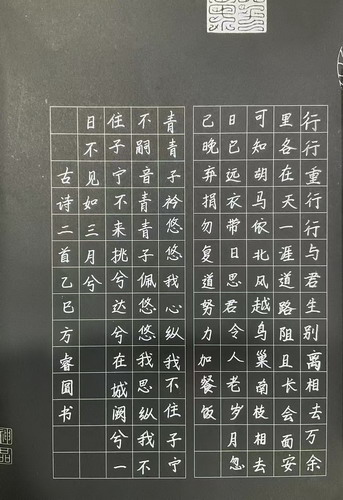 行行重行行与君生别离相去万余
里各在天一涯道路阻且长会面安
可知胡马依北风越鸟巢南枝相去
日已远衣带日思君令人老岁月忽
己晚弃捐勿复道努力加餐饭
青青子衿悠悠我心纵我不住子宁
不嗣音青青子佩悠悠我思纵我不
住子宁不来挑兮达兮在城阙兮一
日不见如三月兮
古诗二首乙巳方睿圆书
神品